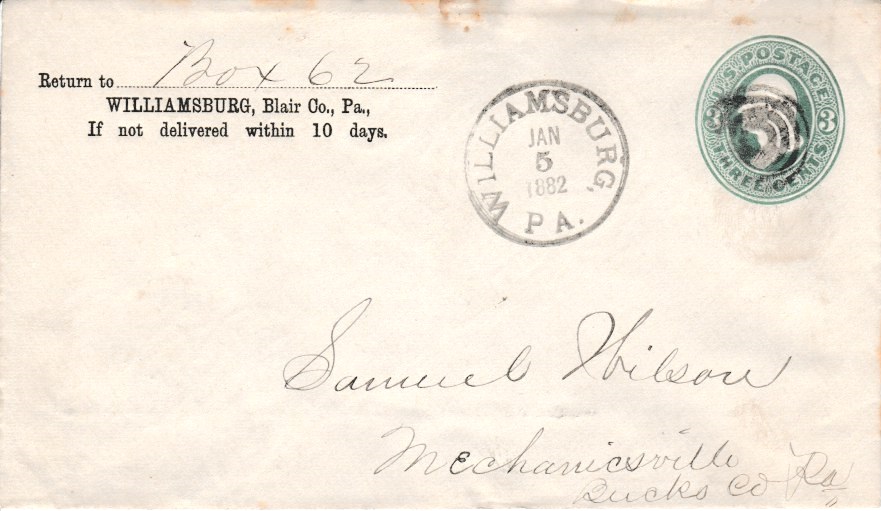 Return to Box 62
WILLIAMSBURG, Blair Co., Pa.,
If not delivered within 10 days.
WILLIAMSBURG,
JAN
5
1882
PA.
U.S. POSTAGE
3 3
THREE CENTS
Samuel Wilson
Mechanicsville
Bucks Co Pa